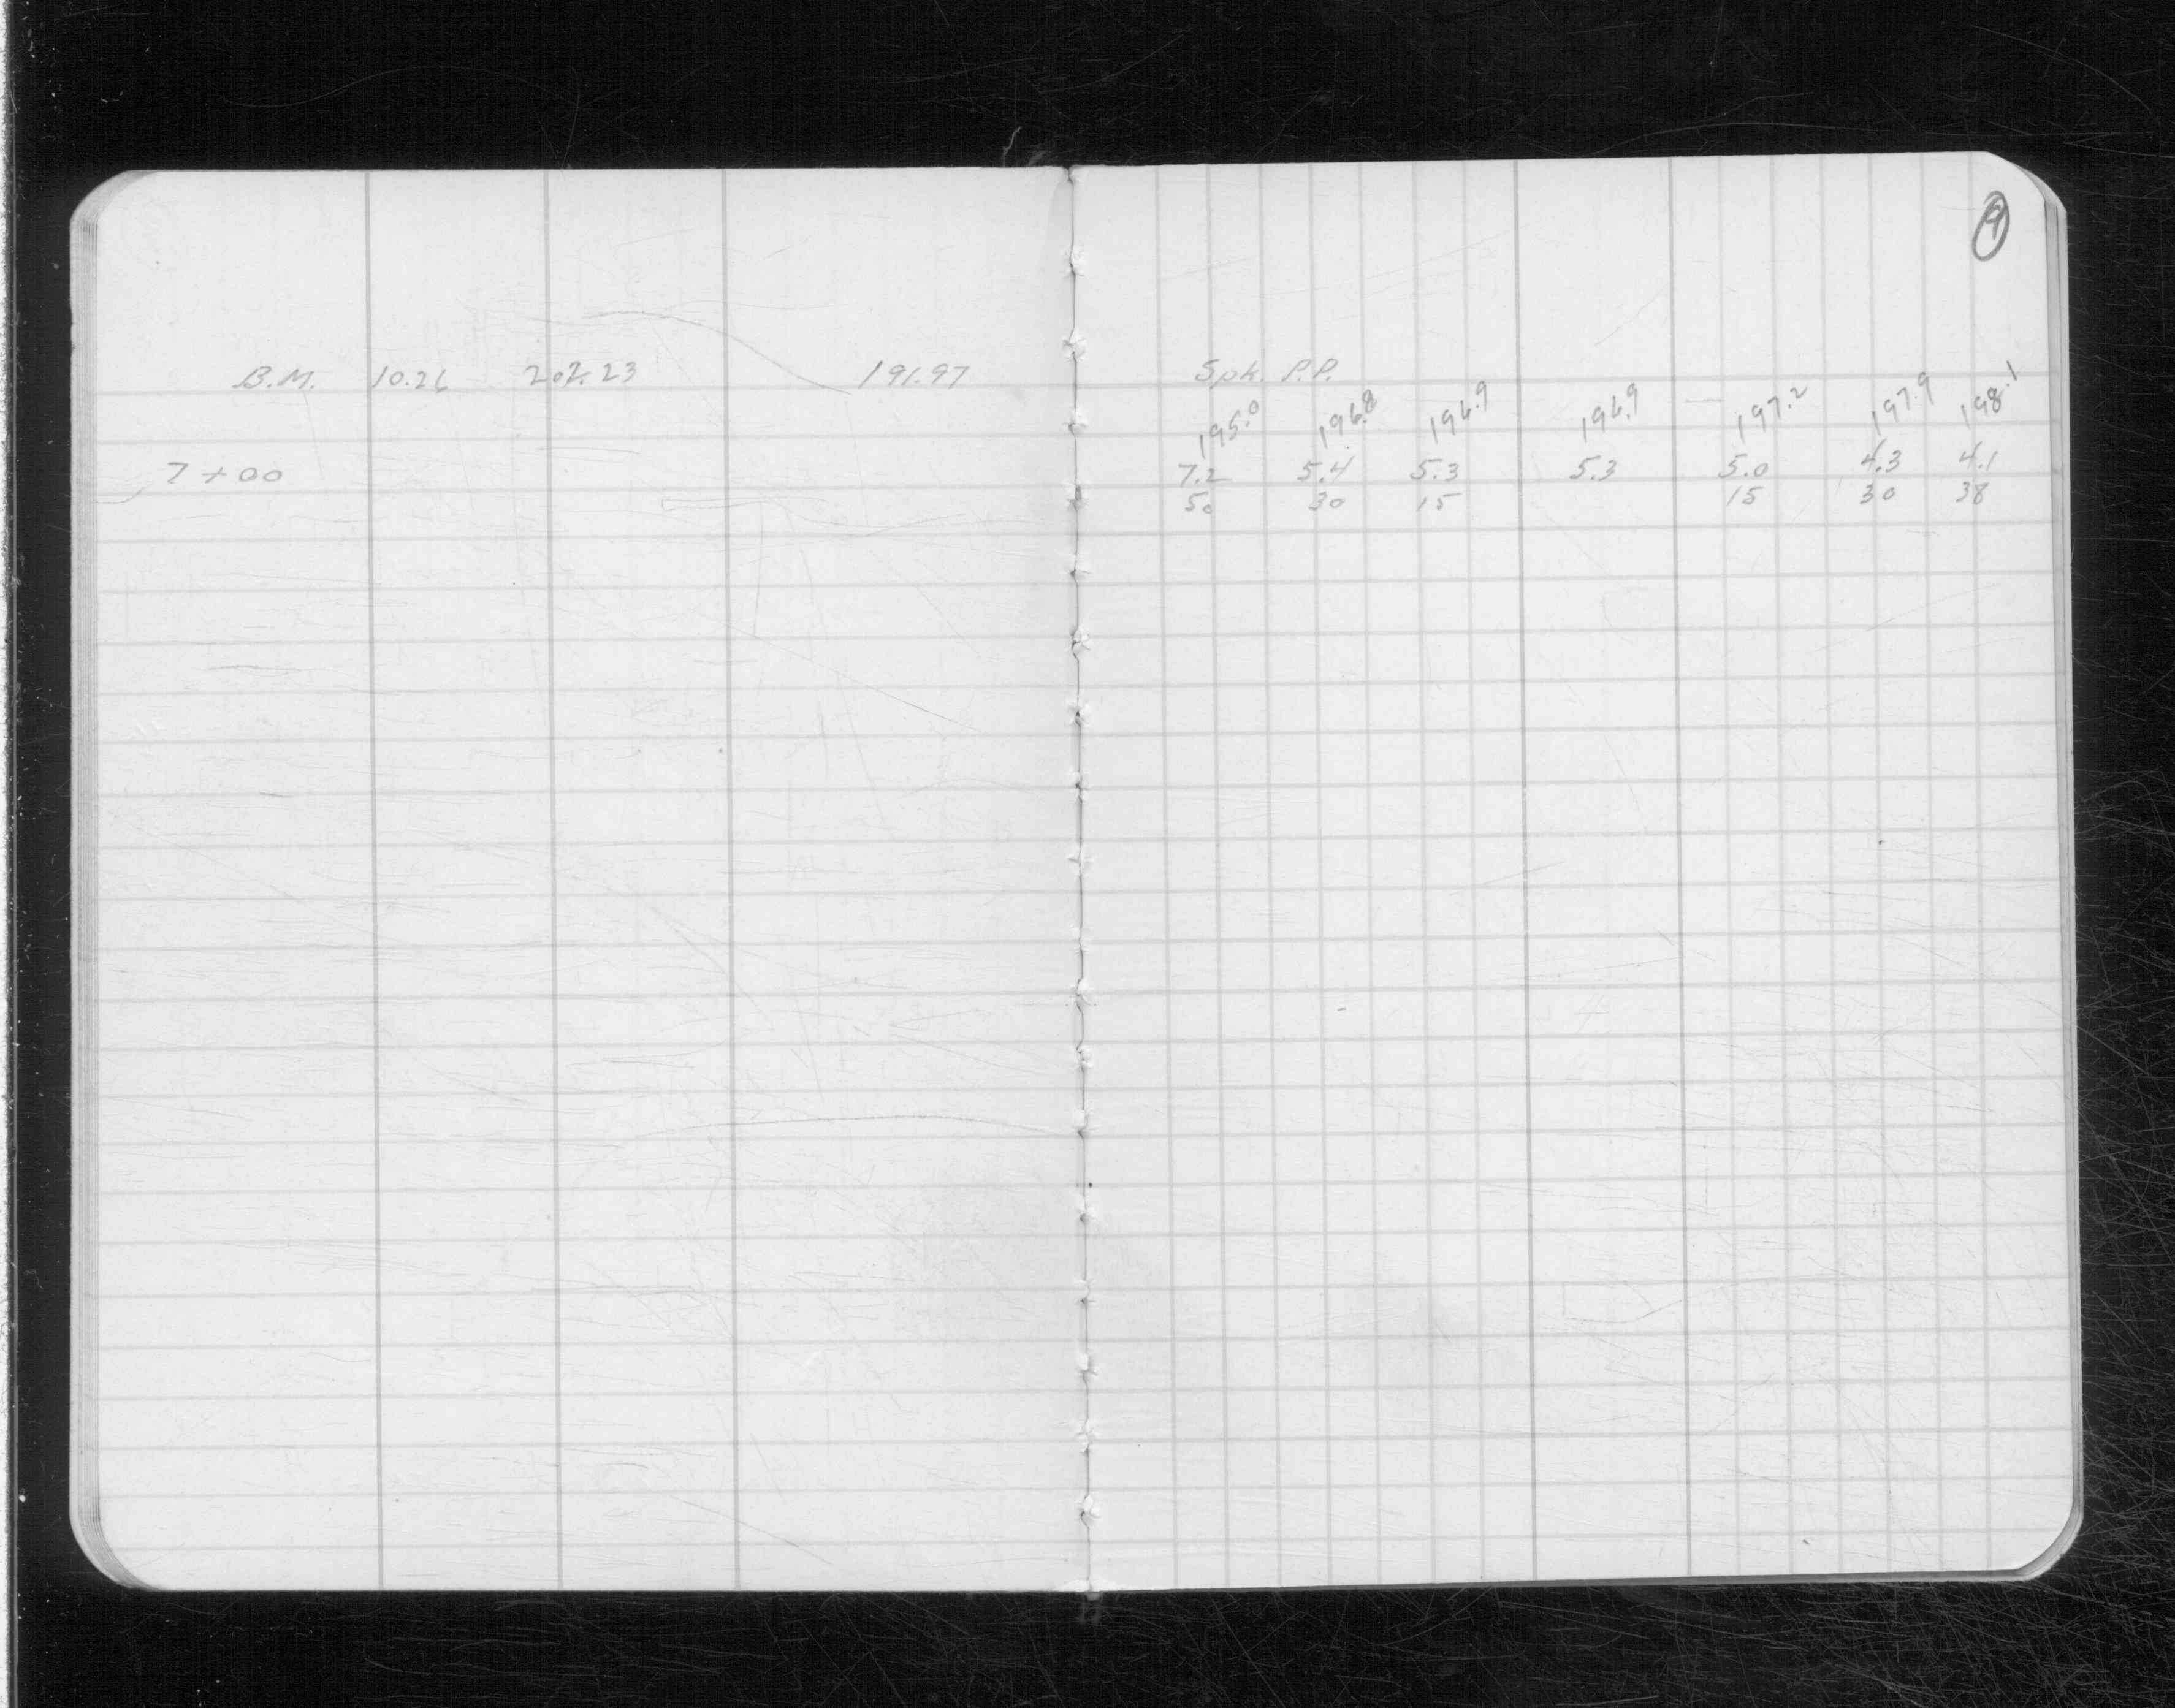 B.M. 10.26 202.23 191.97 Spk. P.P.
195.0 196.8 196.9 196.9 197.2 197.9 198.1
7+00 7.2 5.4 5.3 5.3 5.0 4.3 4.1
50 30 15 15 30 38